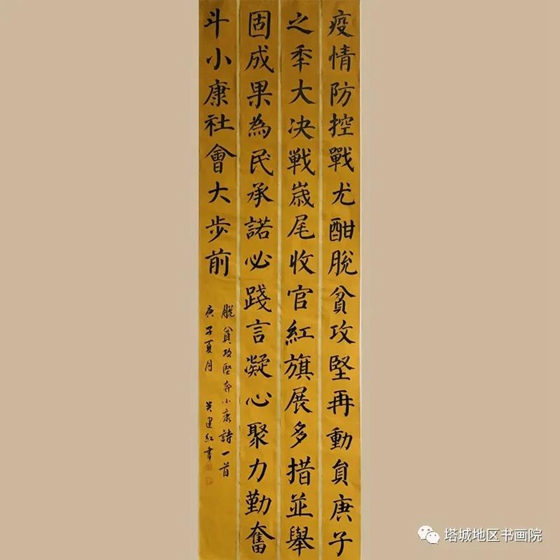 疫情防控戰尤酣脫貧攻堅再動員庚子
之秊大决戰嵗尾收官紅旗展多措並舉
固成果為民承諾必踐言凝心聚力勤奮
斗小康社會大步前
脫貧攻堅奔小康詩一首
庚子夏月 建红書
塔城地区书画院